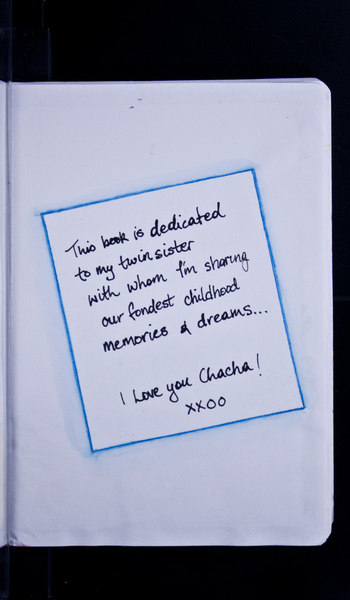 This book is dedicated
to my twin sister
with whom I'm sharing
our fondest childhood
memories & dreams...
I Love you Chacha!
xxoo